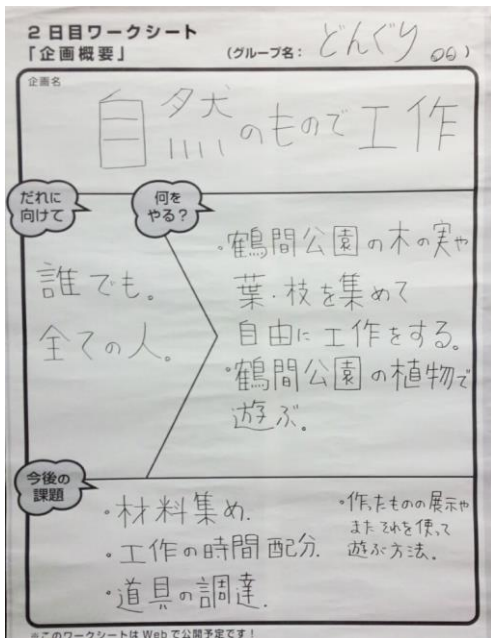 2日目ワークシート
「企画概要」
（グループ名： どんぐり ）
企画名
自然のもので工作
だれに
向けて
誰でも。
全ての人。
何を
やる？
・鶴間公園の木の実や
葉・枝を集めて
自由に工作をする。
・鶴間公園の植物で
遊ぶ。
今後の
課題
・材料集め.
・工作の時間配分.
・道具の調達.
・作ったものの展示や
またそれを使って
遊ぶ方法。
※このワークシートはWebで公開予定です！